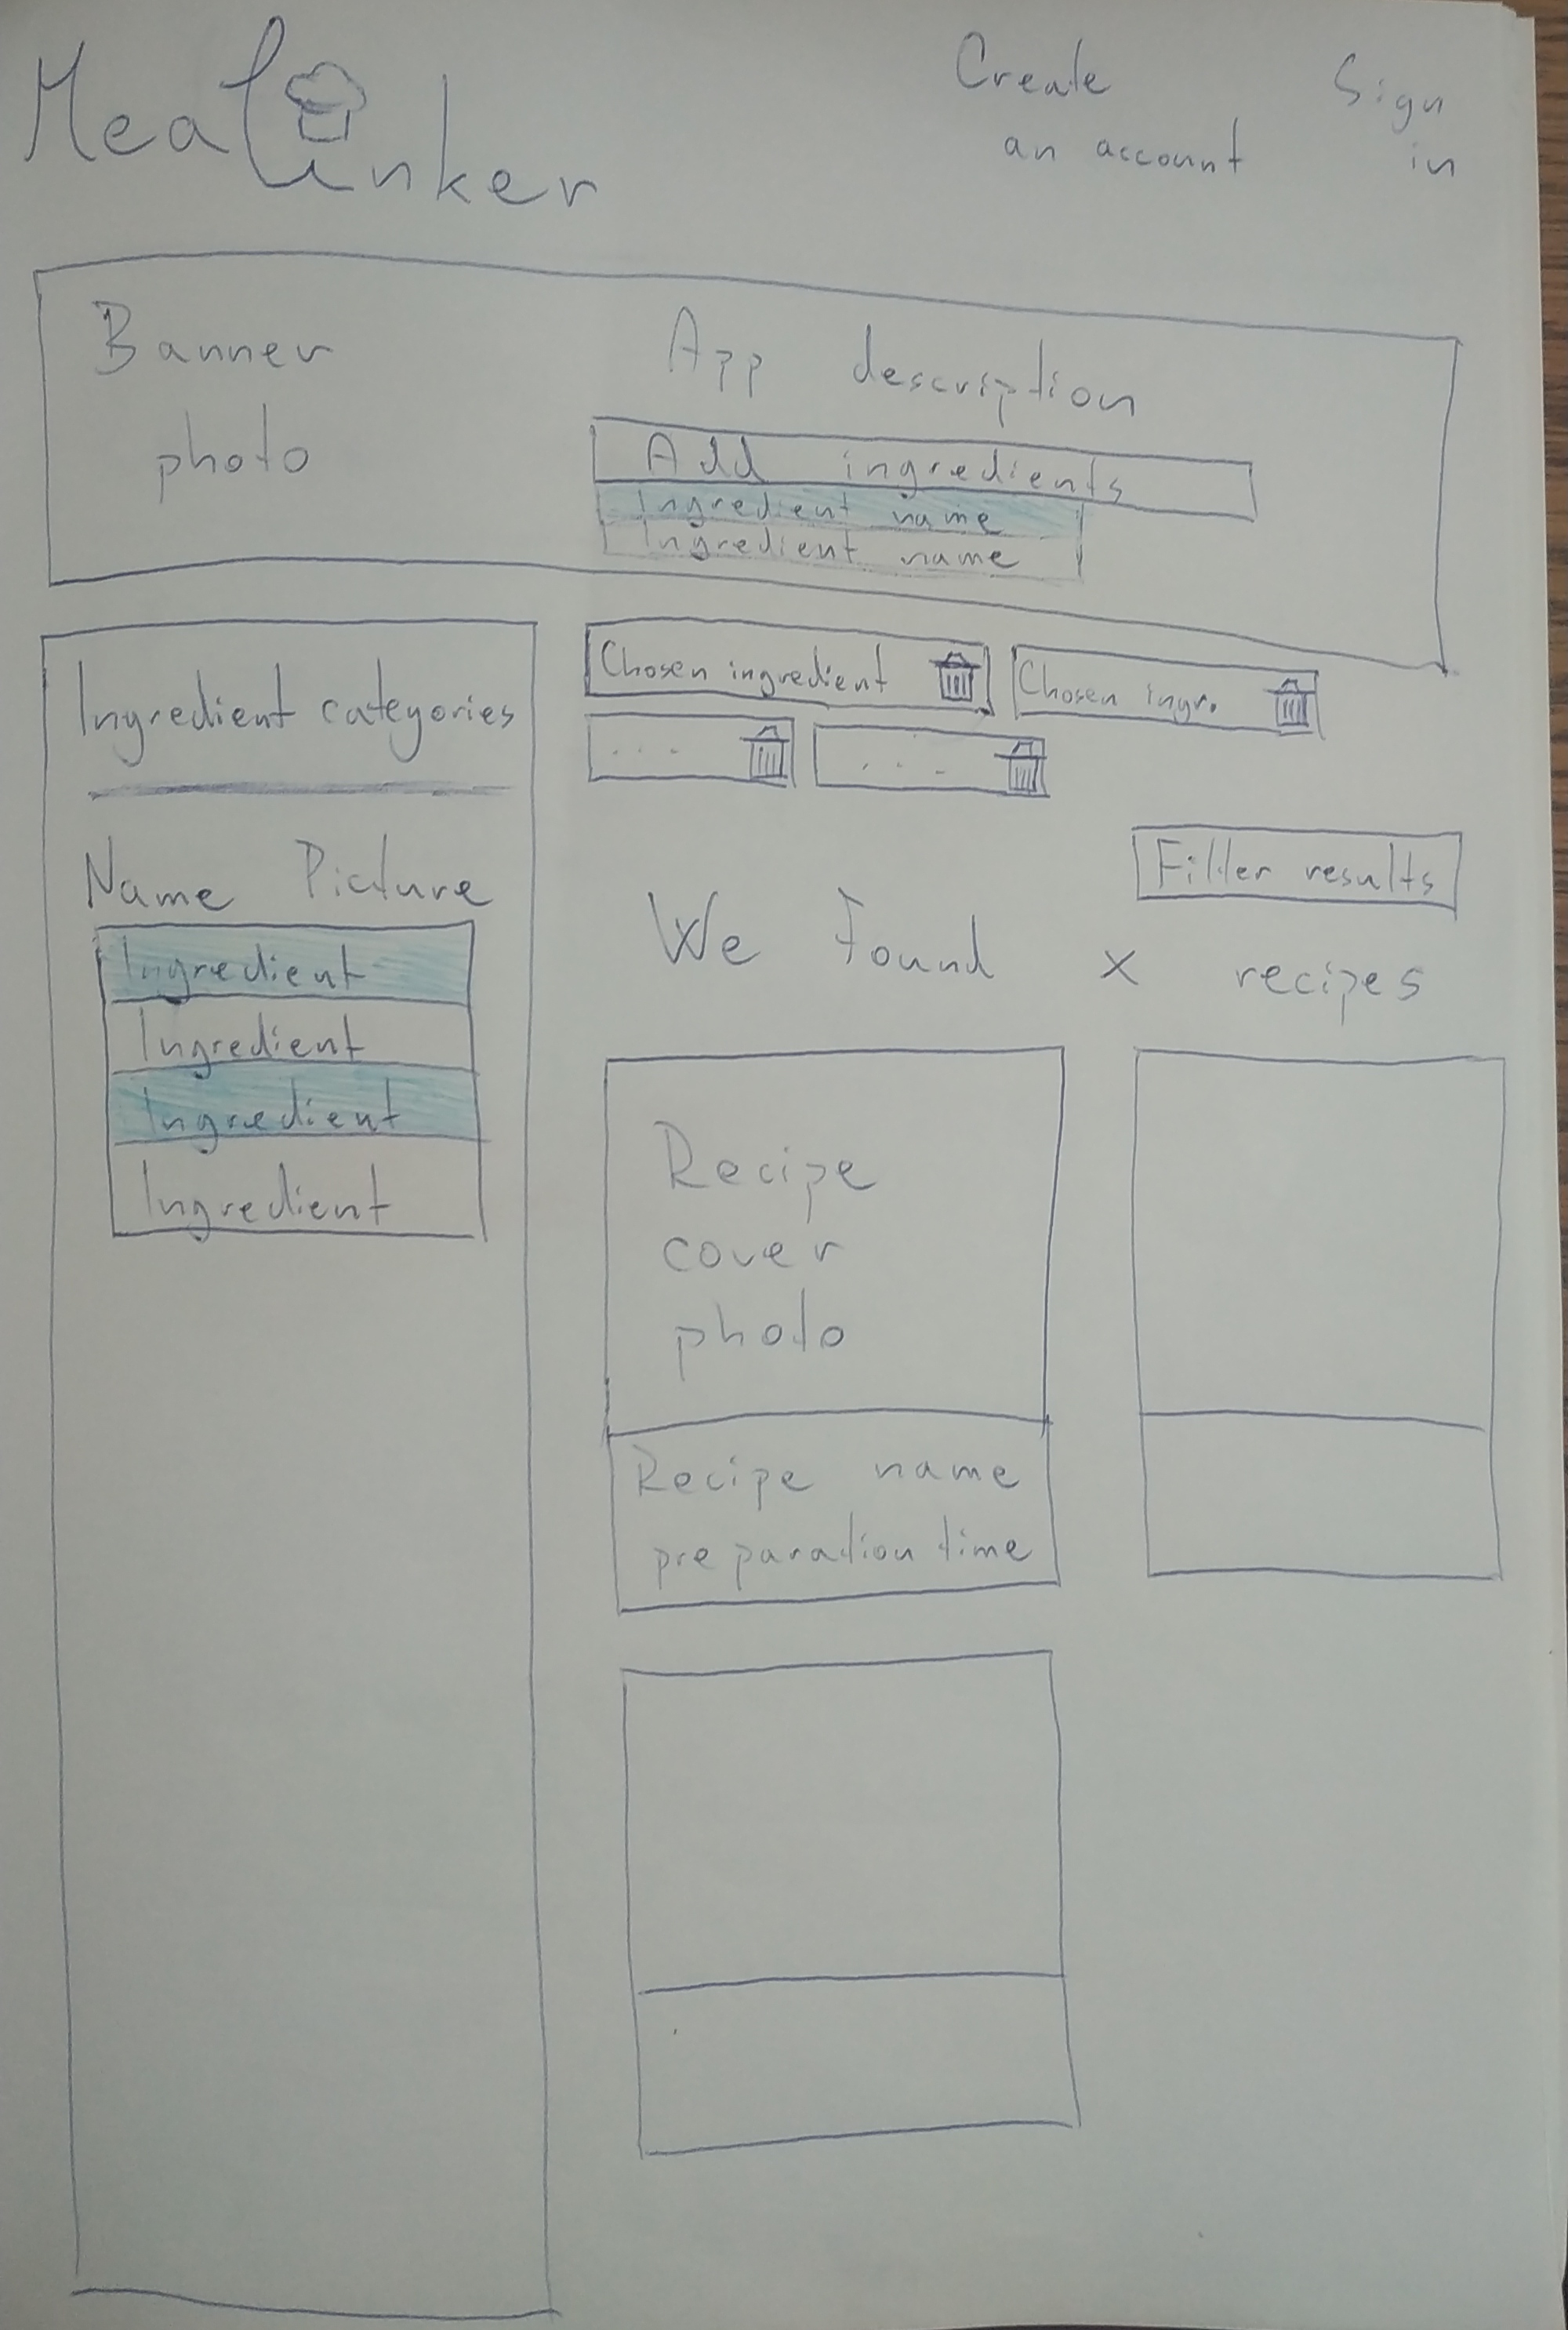 Mealinker
Create
an account
Sign
in
Banner
photo
App description
Add ingredients
Ingredient name
Ingredient name
Ingredient categories
Name Picture
Ingredient
Ingredient
Ingredient
Ingredient
Chosen ingredient
Chosen ingr.
...
...
Filter results
We Found x recipes
Recipe
cover
photo
Recipe name
preparation time